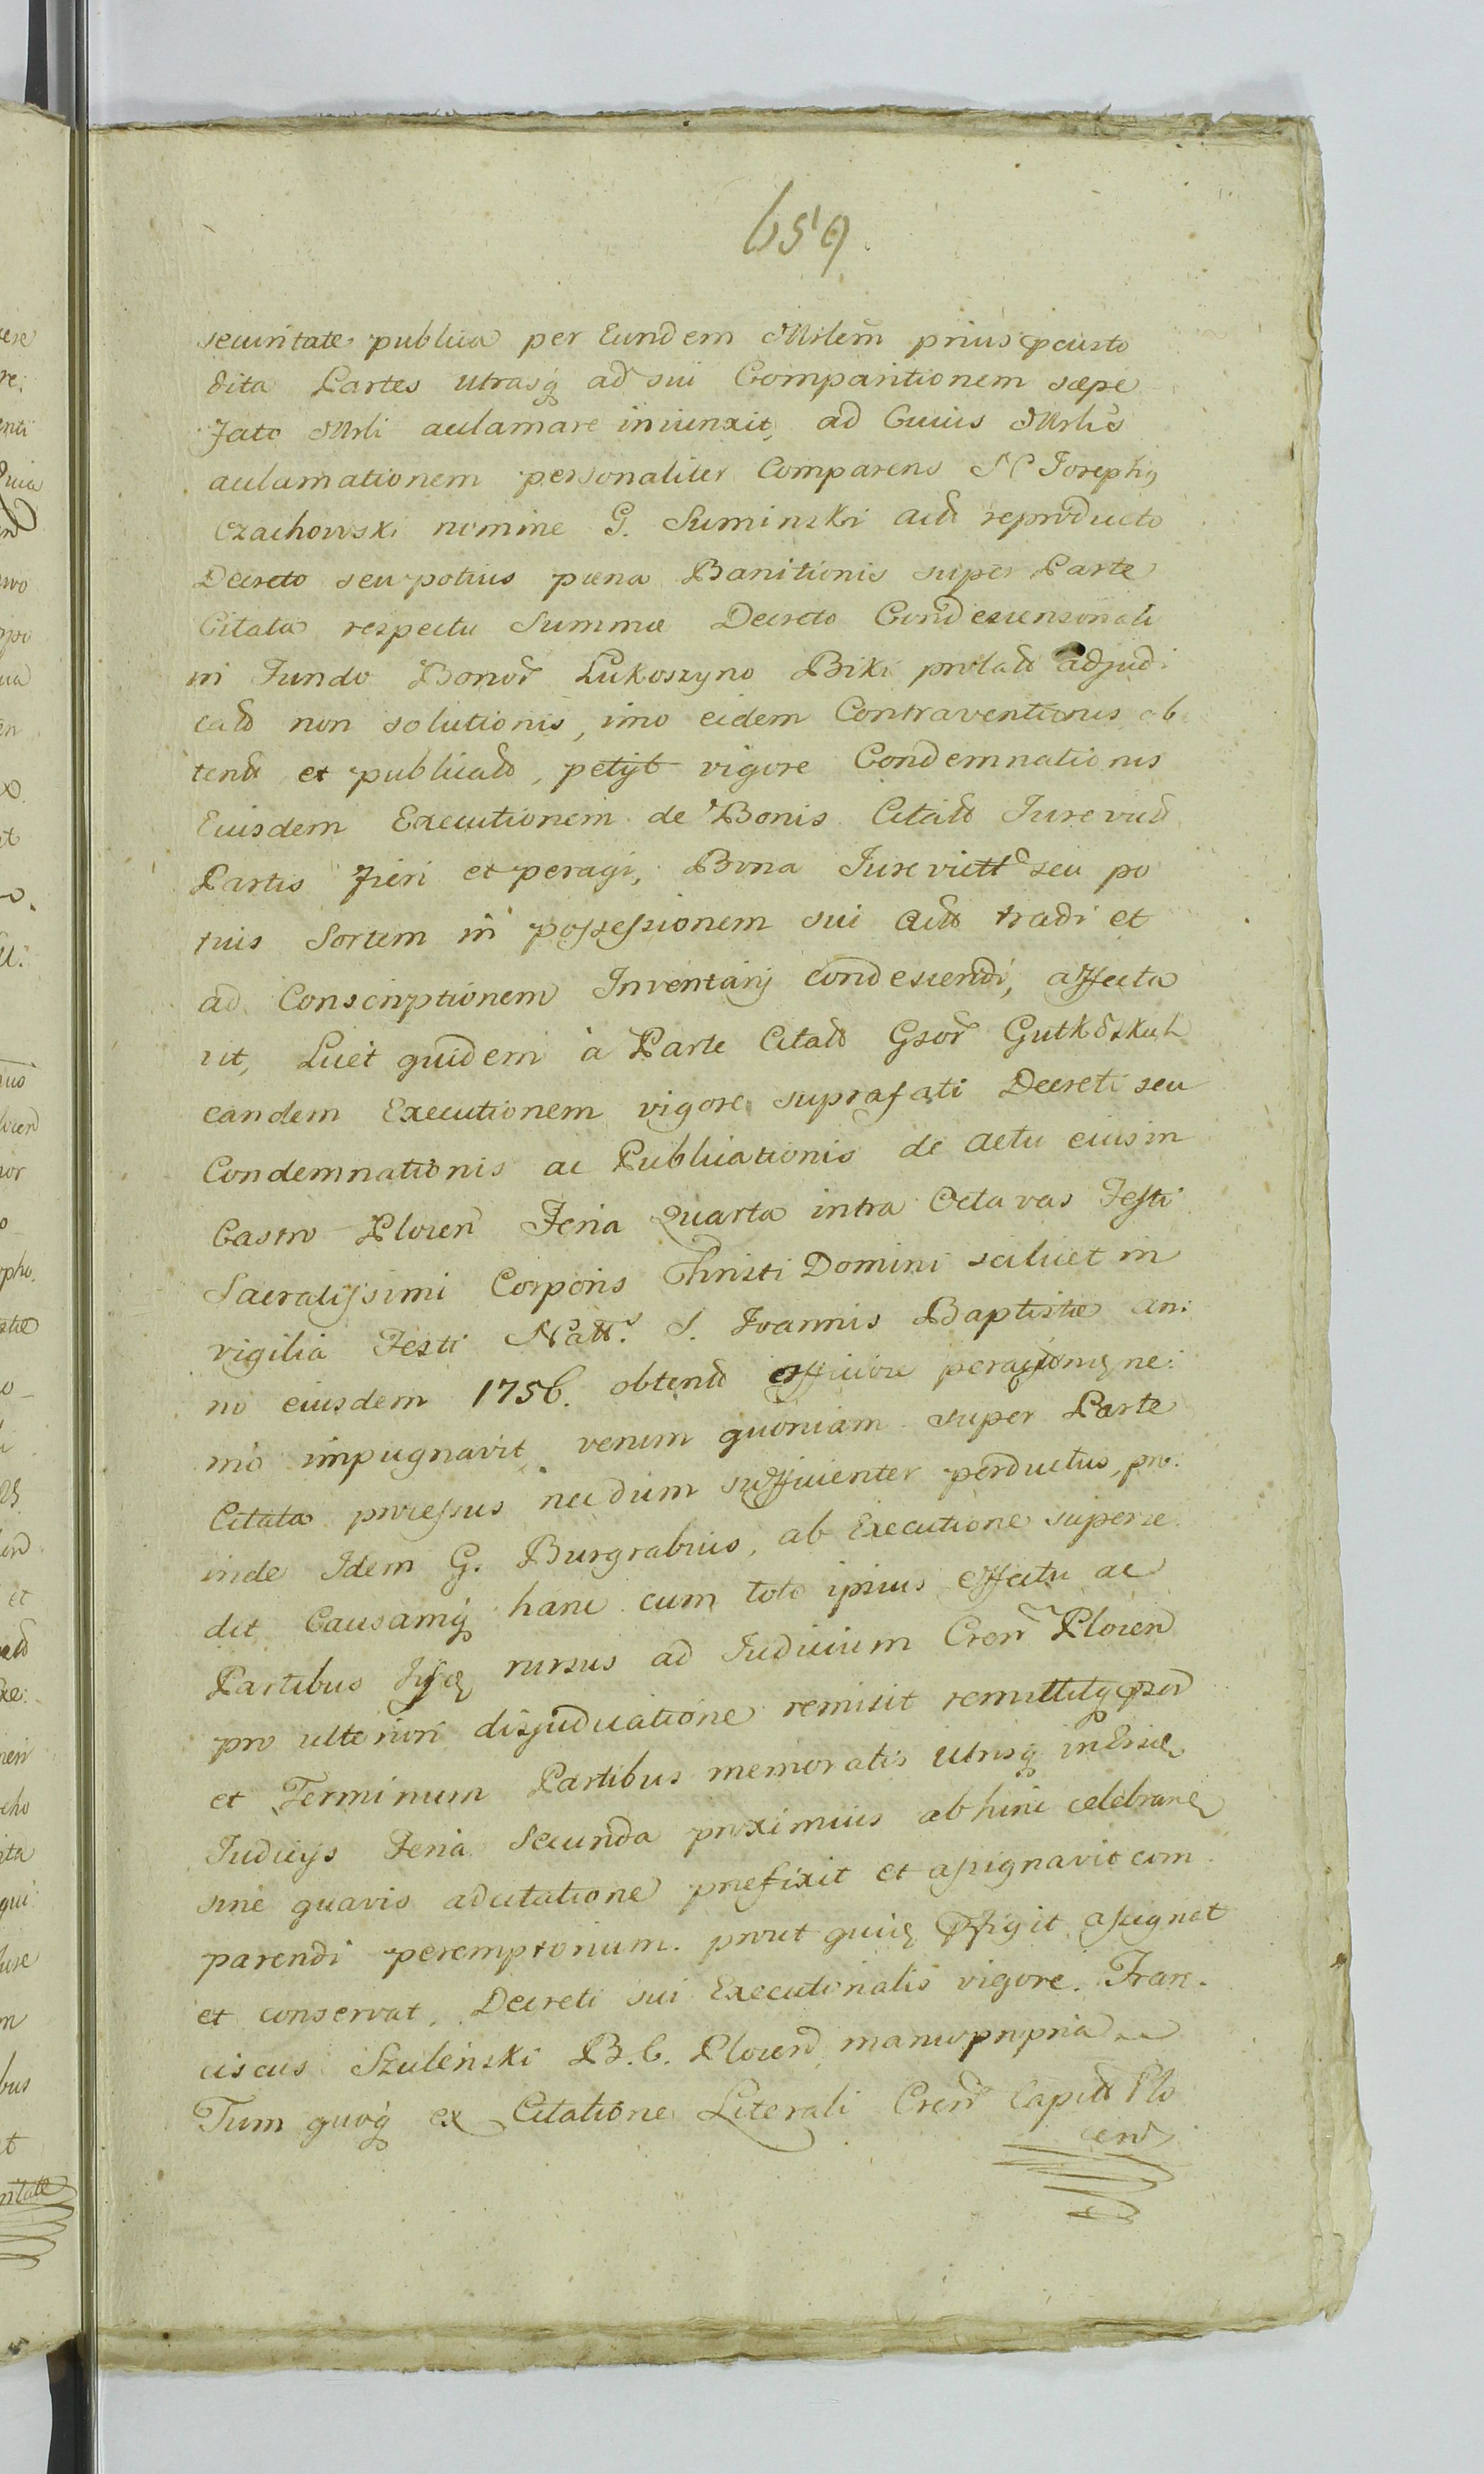 659.
securitate publica per Eundem Mrlem prius pcusto
dita Partes utrasq ad sui Comparitionem sæpe
fato Mrli acclamare iniunxit, ad Cuius Mrlis
acclamationem personaliter Comparens N Josephg
Czachowski nomine G. Suminski Actt reproducto
Decreto seu potius pæna Banitionis super Parte
Citata respectu Summæ Decreto Condescensionali
in Fundo Bonor Lukoszyno Biki prolatt adjudi
catt non solutionis, imo eidem Contraventionis ob
tentt et publicatt, petyt vigore Condemnationis
Eiusdem Executionem de Bonis Citatt Jurevict
Partis fieri et peragi, Bona Jurevictt seu po
tius Sortem in possessionem sui Actt tradi et
ad Conscriptionem Inventarij condescendi, affecta
vit, Licet quidem à Parte Citatt Gsor
eandem Executionem vigore suprafati Decreti seu
Condemnationis ac Publicationis de actu eius in
Castro Plocen Feria Quarta intra Octavas Festi
Sacratissimi Corporis Christi Domini scilicet in
vigilia Festi Natt. S. Joannis Baptistæ an:
no eiusdem 1756. obtentt efficere ne:
mo impugnavit, verum quoniam super Parte
Citata processus necdum sufficienter perductus, pro:
inde Idem G. Burgrabius, ab Executione superse
dit Causamq hanc cum toto ipsius effectu ac
Partibus rursus ad Judicium Cren Plocen
pro ulteriori disjudicatione remisit remittitq
et Terminum Partibus memoratis utrisq
Judicijs Feria Secunda proximius abhinc celebran
sine quavis adcitatione præfixit et assignavit com
parendi peremptorium. prout pfigit assignat
et conservat, Decreti sui Executionalis vigore. Fran-
ciscus Szulenski B. C. Plocen manu propria
Tum quoq ex Citatione Literali Cren Capitt Plo
cen